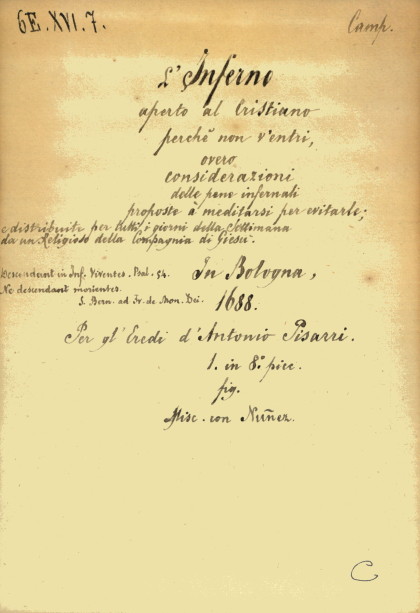 6E. XVI. 7.
Camp.
L'Inferno
aperto al Cristiano
perchè non v'entri,
overo
considerazioni
delle pene infernali
proposte à meditarsi per evitarle;
e distribuite per tutti i giorni della Settimana
da un Religioso della Compagnia di Giesù.
Descendant in Inf. Viventes. Psal. 54.
Ne descendant morientes.
S. Bern. ad Fr. de Mon. Dei.
In Bologna,
1688.
Per gl'Eredi d'Antonio Pisarri.
1. in 8.° picc.
fig.
Misc. con Nuñez.
C